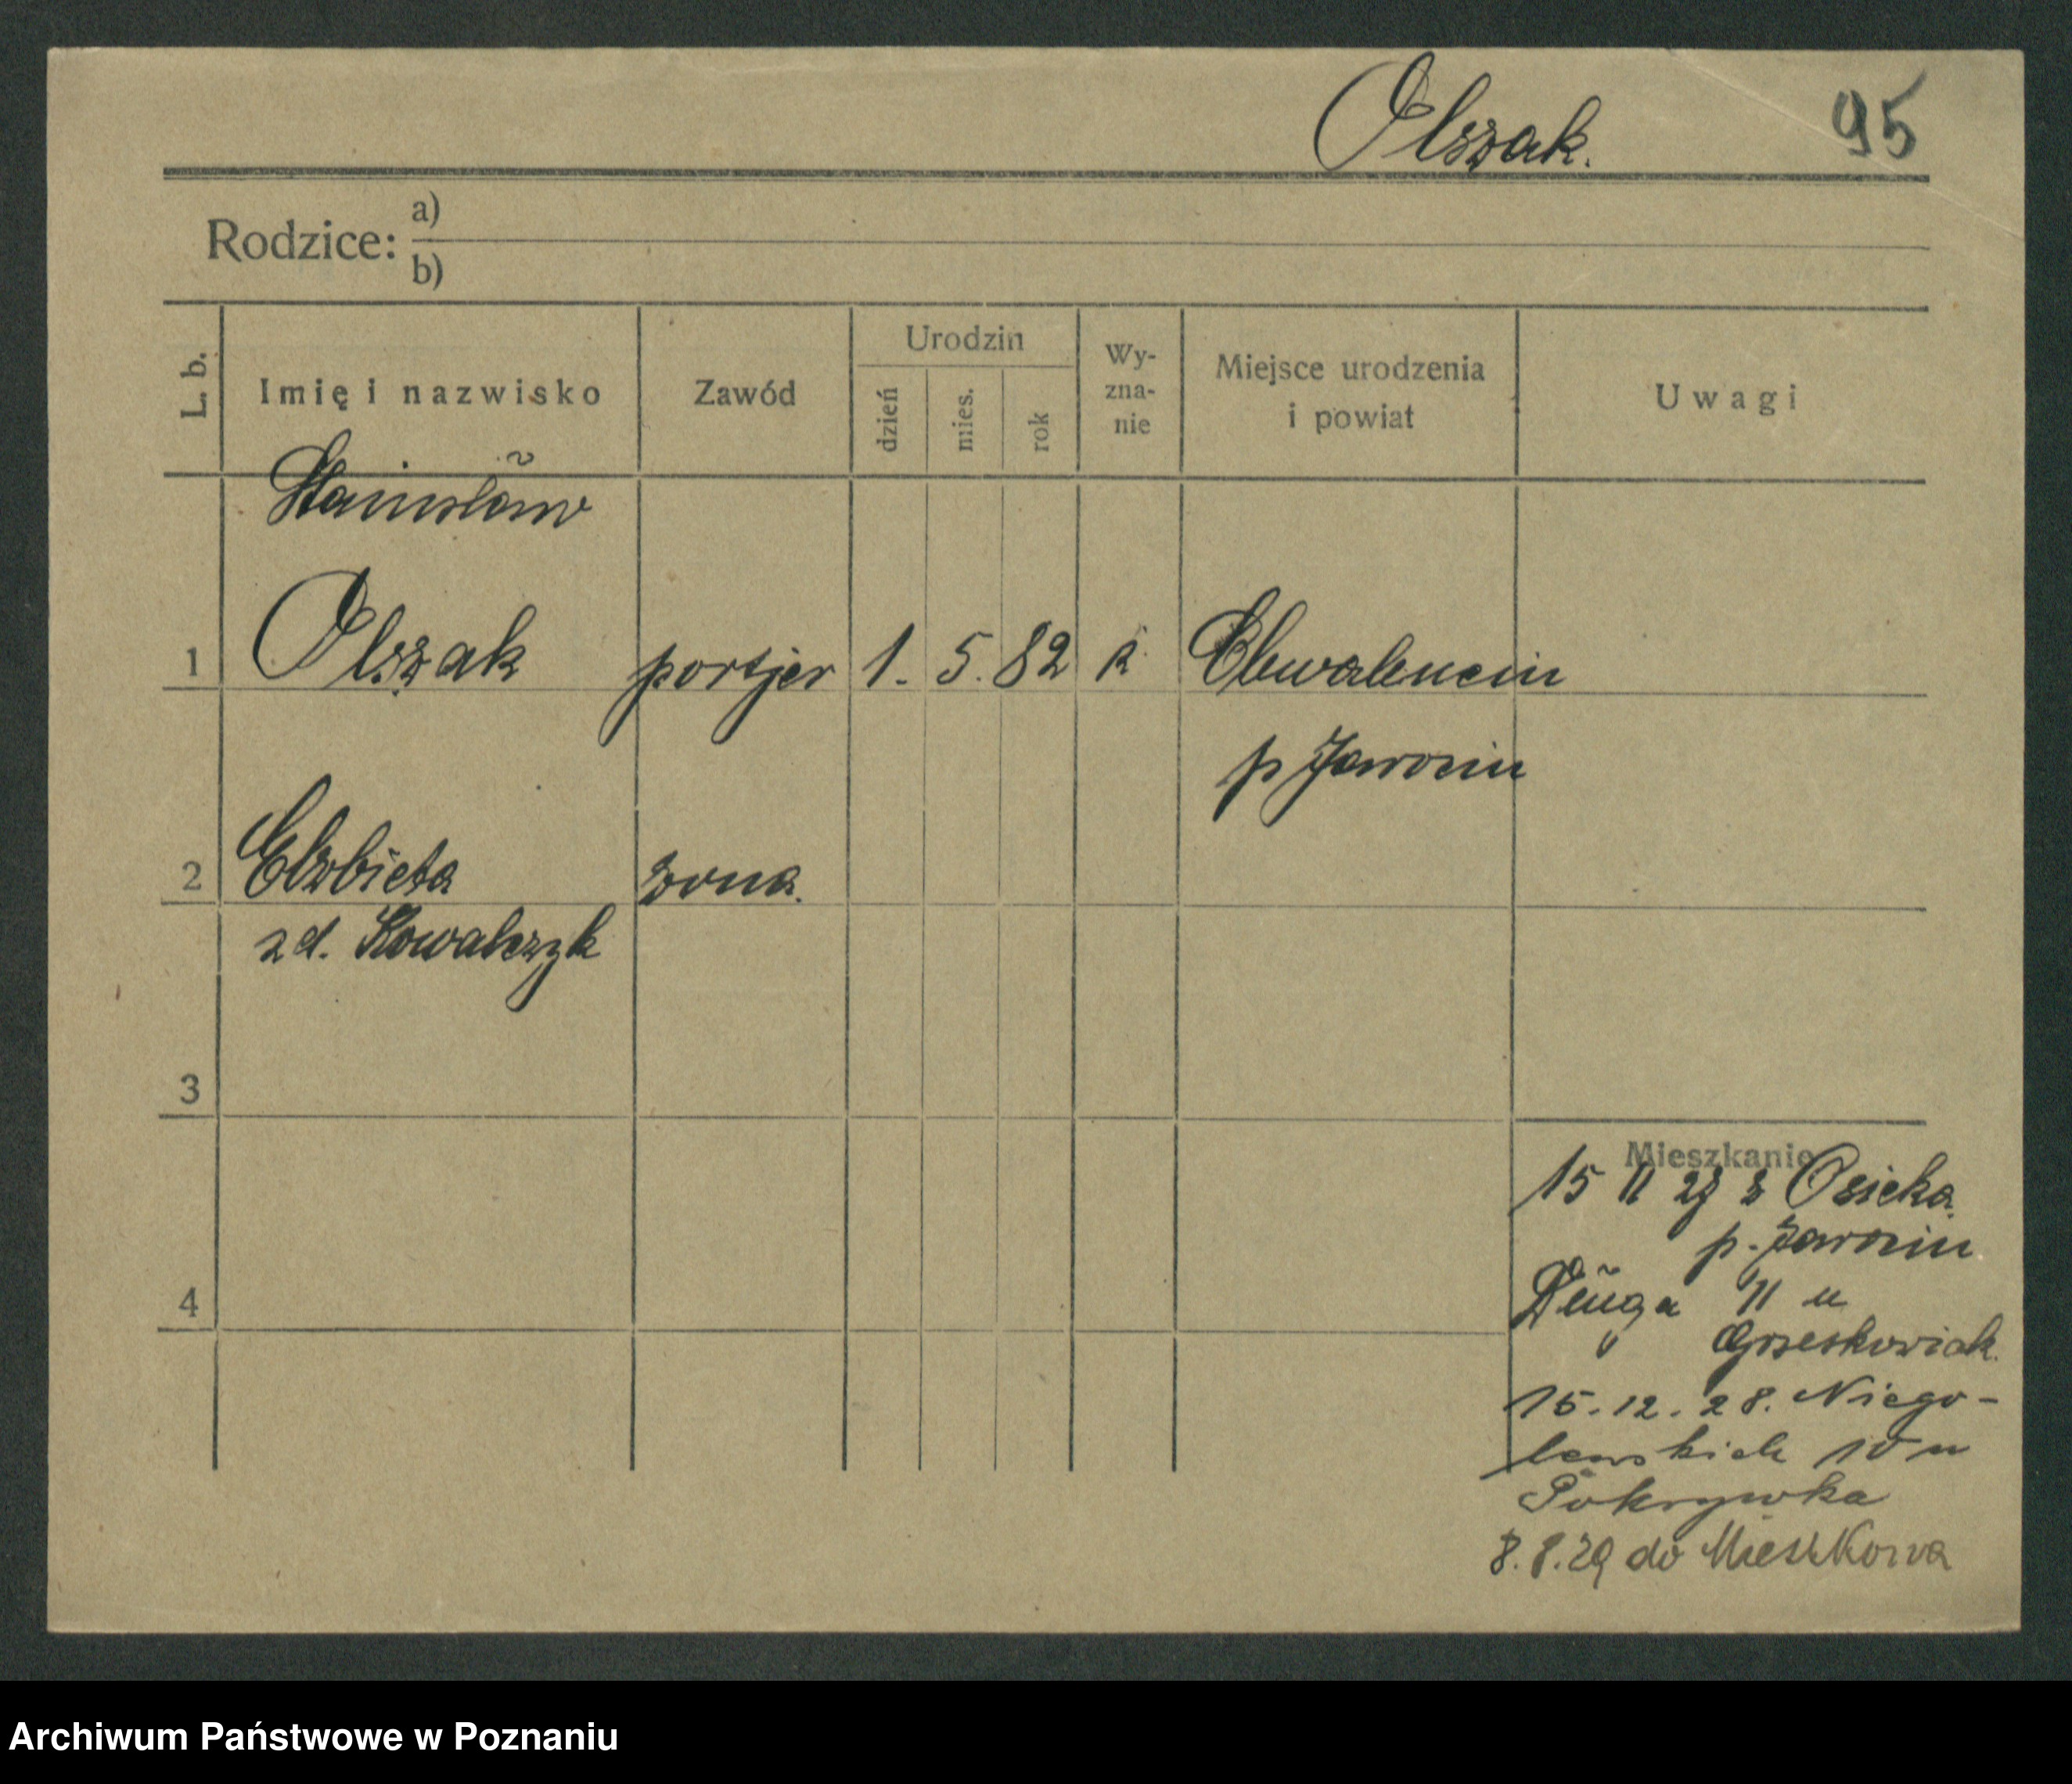 Olszak. 95
Rodzice: a)
b)
L. b. Imię i nazwisko Zawód Urodzin dzień mies. rok Wy-zna-nie Miejsce urodzenia i powiat Uwagi
Stanisław
1 Olszak portjer 1. 5. 82 k Chwalencin
p Jarocin
2 Elżbieta żona.
zd. Kowalczyk
3
Mieszkanie
15 11 27 z Osieka
p. Jarocin
4 Długa 11 u
" Grzeskowiak.
15. 12. 28. Niego-
lewskich 10 u
Pokrywka
8. 8. 29 do Mieszkowa
Archiwum Państwowe w Poznaniu